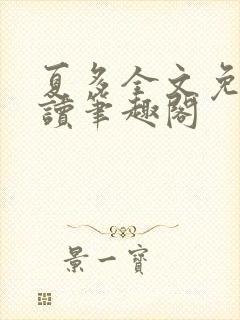 夏多全文免
讀筆趣閣
景一寶